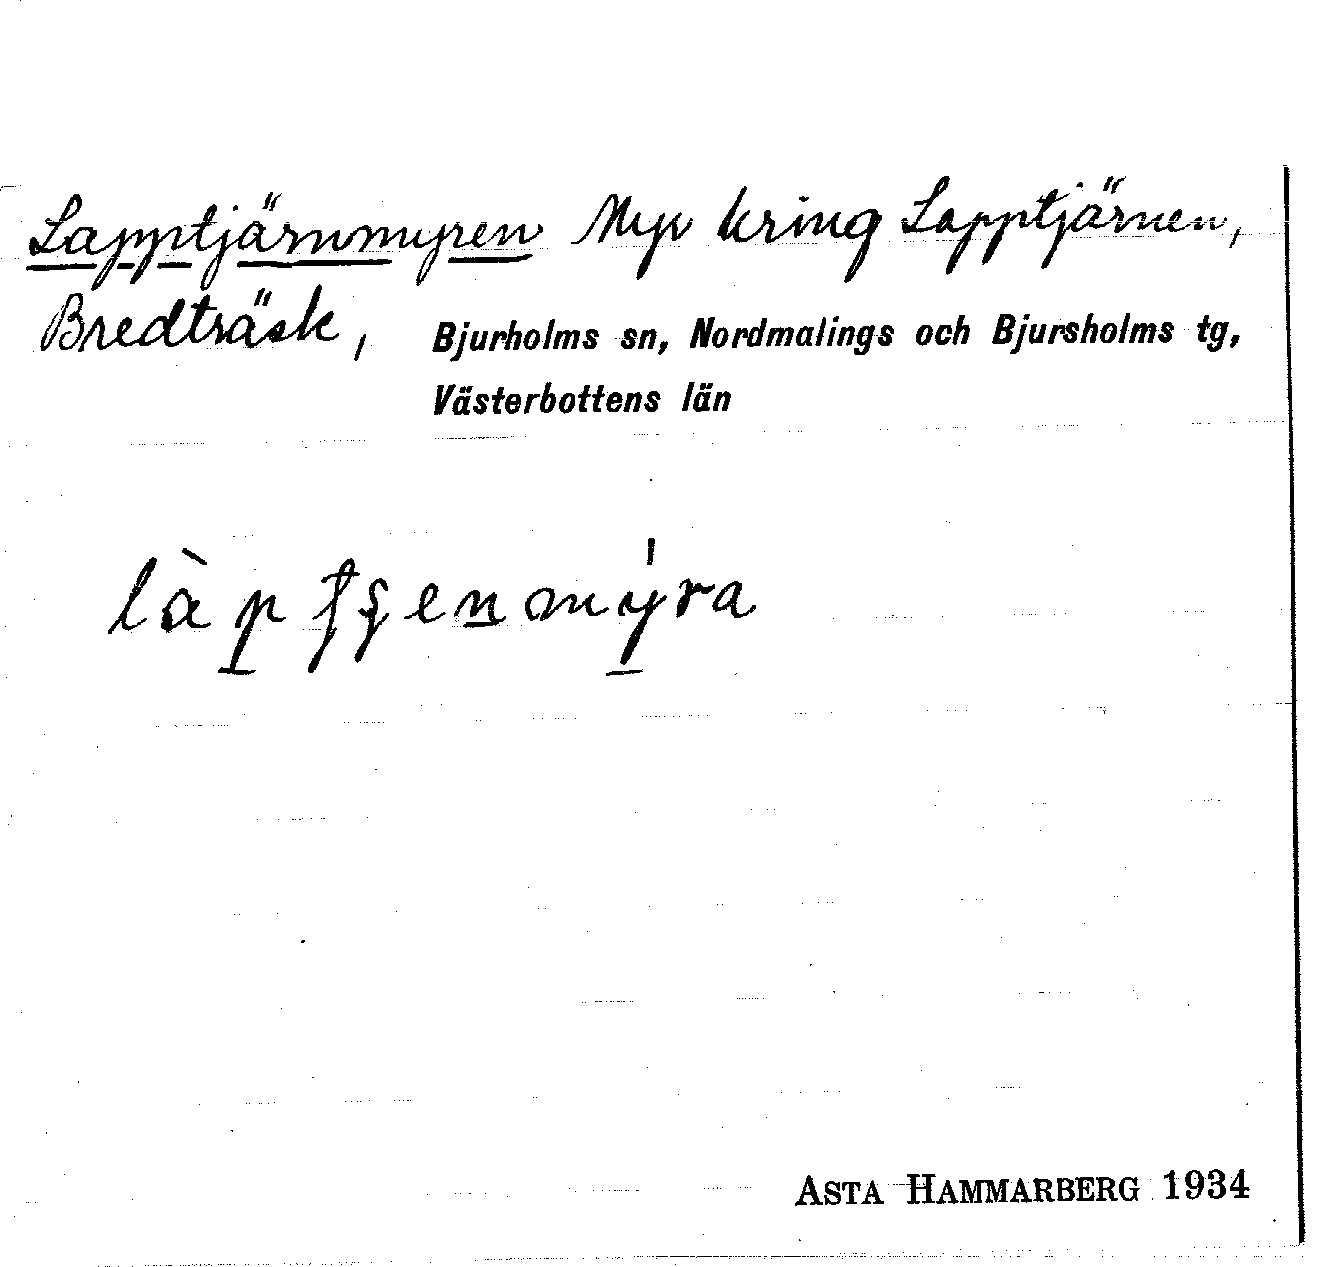 Lapptjärnmyren Myr kring Lapptjärnen,
Bredträsk, Bjurholms sn, Nordmalings och Bjursholms tg,
Västerbottens län
làptʂenmýra
ASTA HAMMARBERG 1934